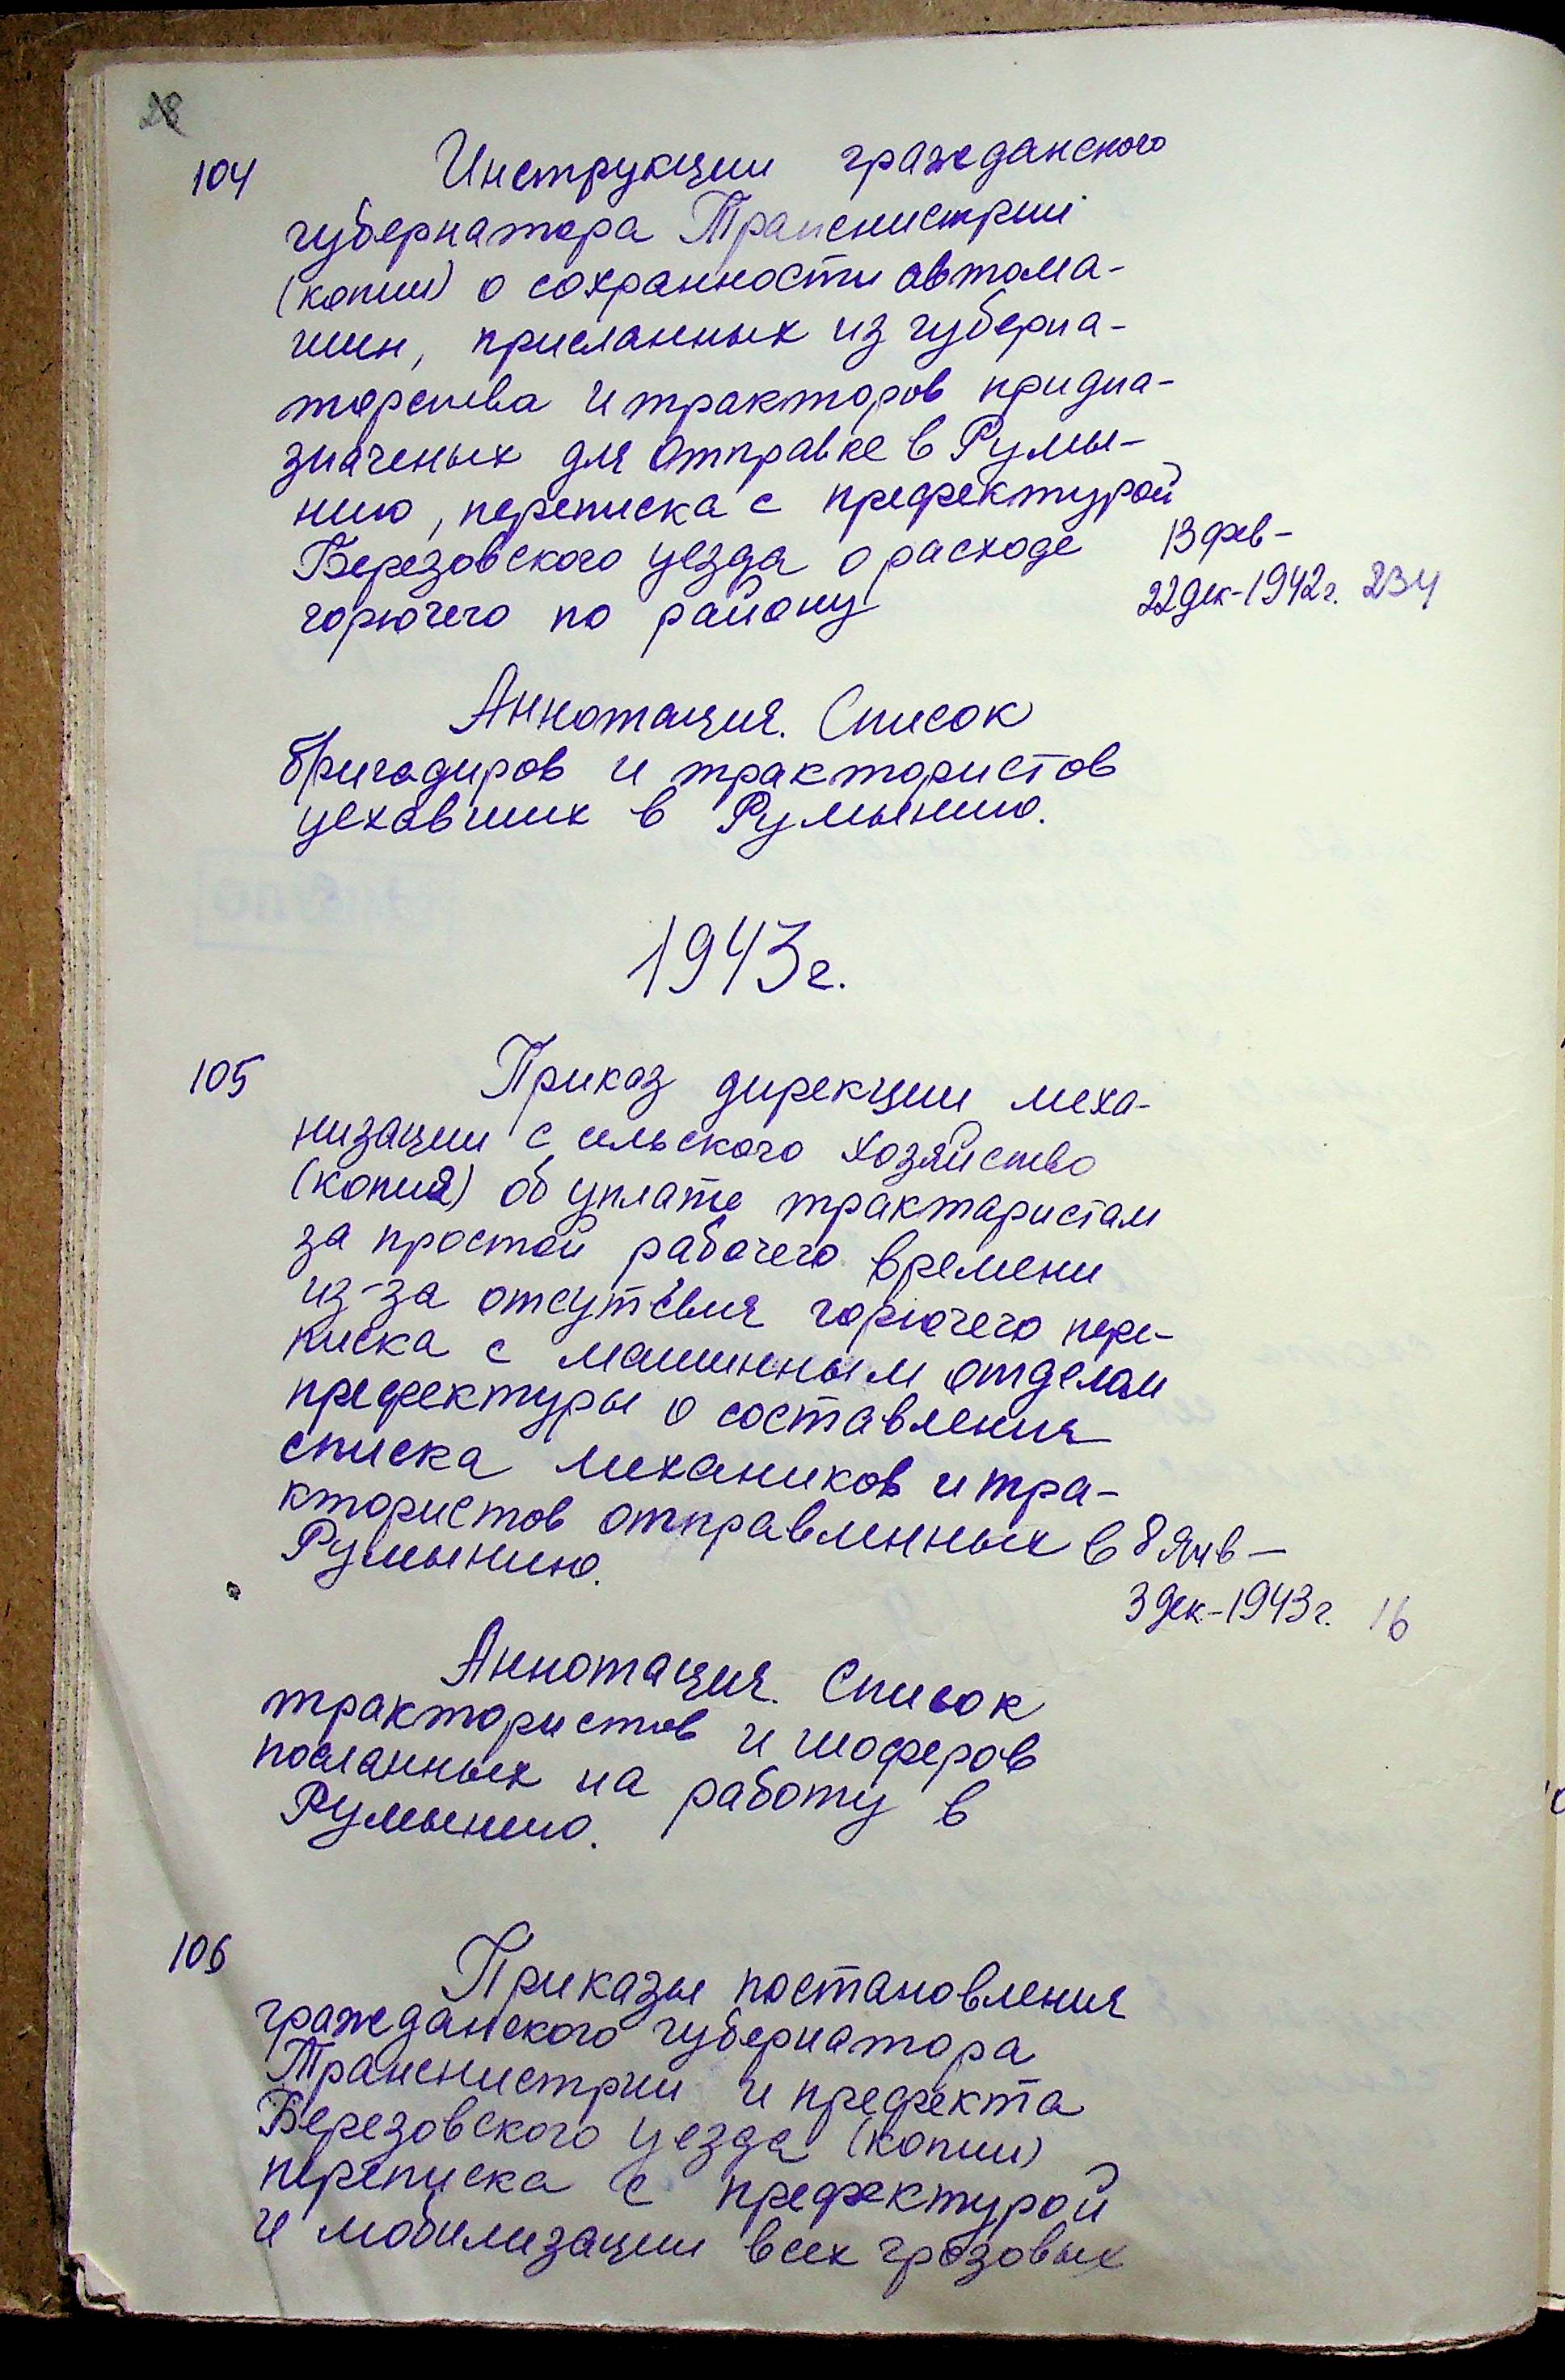 28
104 Инструкции гражданского
губернатора Транснистрии
(копии) о сохранности автома-
шин, присланных из губерна-
торства и тракторов придна-
значеных для отправке в Румы-
нию, переписка с префектурой
Березовского уезда о расходе 13 фев-
горючего по району 22 дек-1942г. 234
Аннотация. Список
бригадиров и трактористов
уехавших в Румынию.
1943г.
105 Приказ дирекции меха-
низации с сельского хозяйство
(копия) об уплате трактаристам
за простой рабочего времени
из-за отсутствия горючего пере-
писка с машинным отделом
префектуры о составления
списка механиков и тра-
ктористов отправленных в 8 янв-
Румынию.
3 дек-1943г. 16
Аннотация. Список
трактористов и шоферов
посланных на работу в
Румынию.
106 Приказы постановления
гражданского губернатора
Транснистрии и префекта
Березовского уезда (копии)
переписка с префектурой
и мобилизации всех грозовых